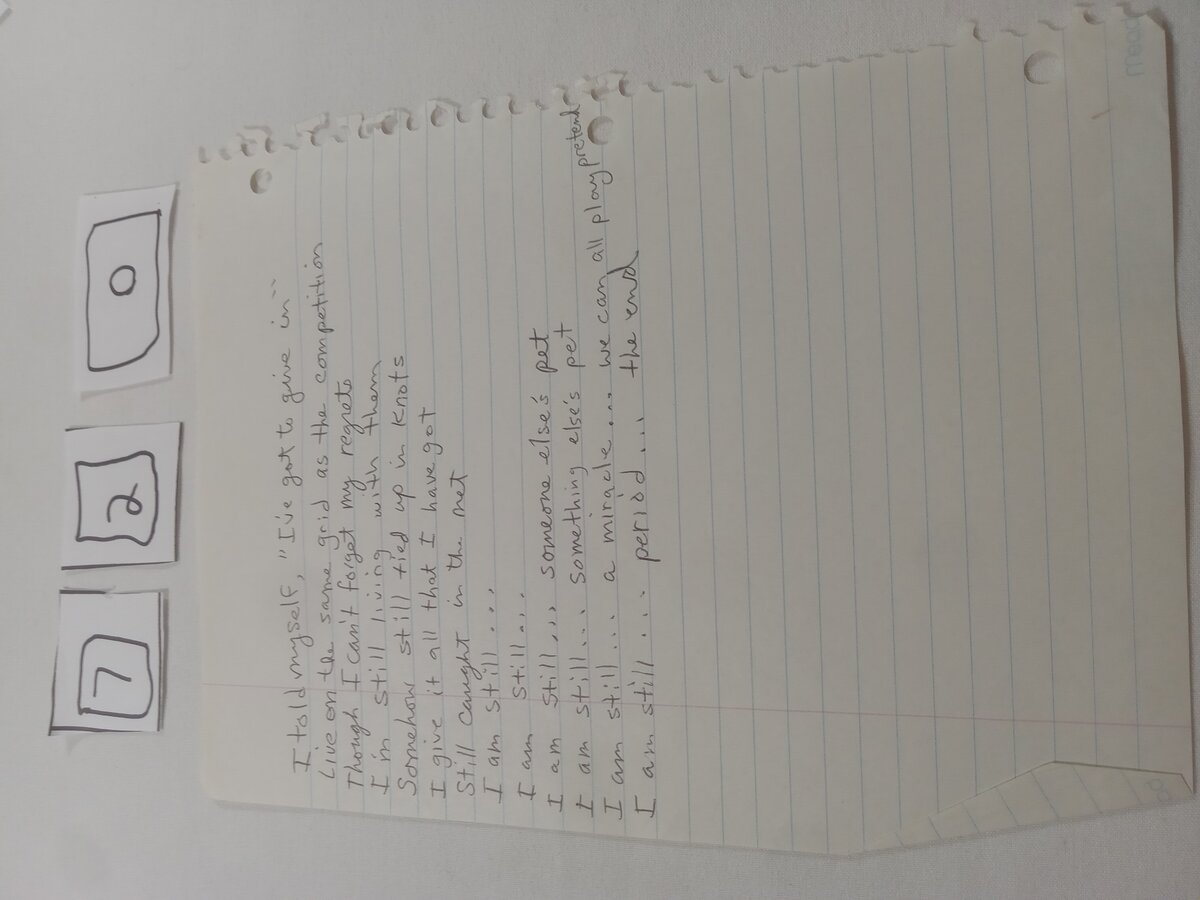 7 2 0
I told myself, "I've got to give in"
Live on the same grid as the competition
Though I can't forget my regrets
I'm still living with them
Somehow still tied up in knots
I give it all that I have got
Still caught in the net
I am still...
I am still...
I am still... someone else's pet
I am still... something else's pet
I am still... a miracle... we can all play pretend
I am still... period... the end
Mead